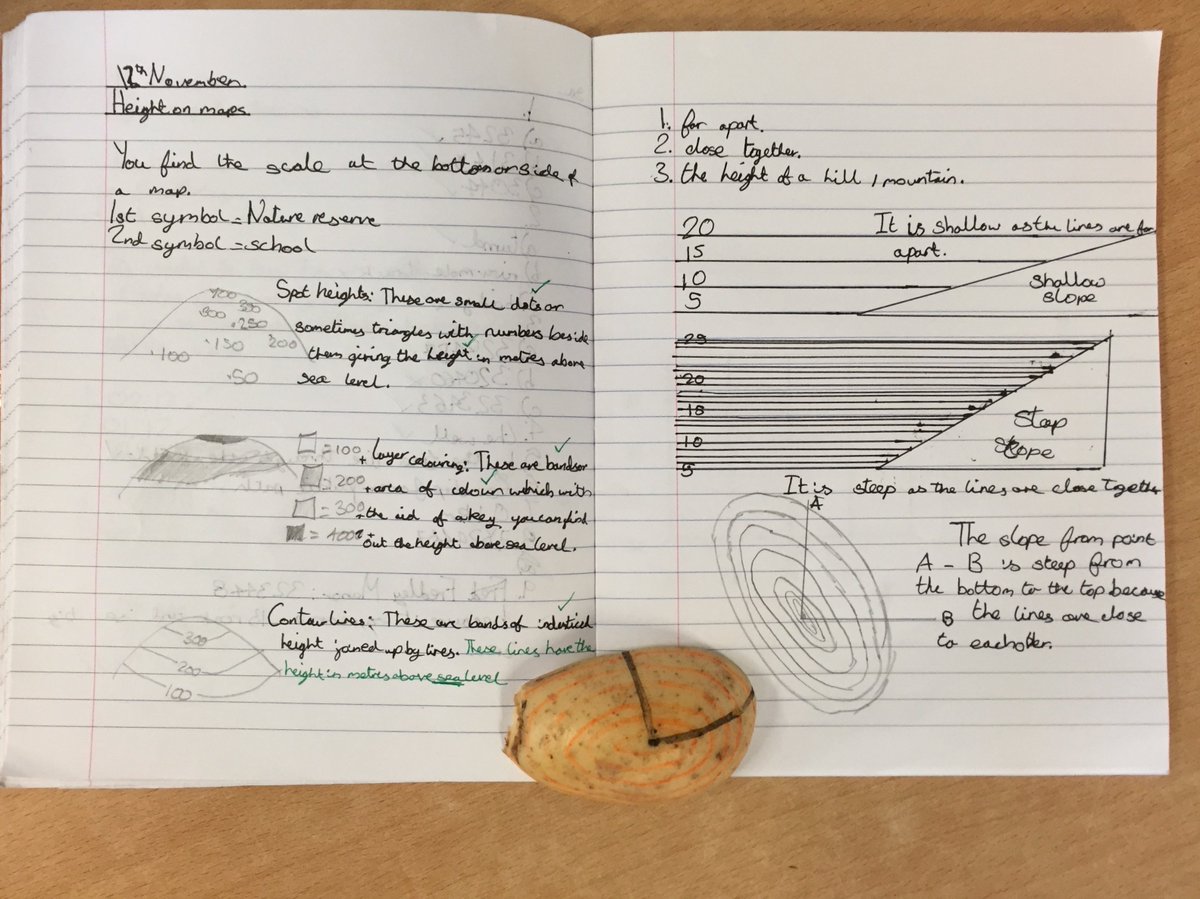 12th November.
Height on maps.
You find the scale at the bottom or side of
a map.
1st symbol = Nature reserve
2nd symbol = school
Spot heights: These are small dots or
sometimes triangles with numbers beside
them giving the height in metres above
sea level.
400
300
300
.250
.150
200
.100
.50
= 100
= 200
= 300
= 400
layer colouring: These are bands or
area of, colour which with
the aid of a key you can find
out the height above sea level.
Contour lines: These are bands of indentical
height joined up by lines. These lines have the
height in metres above sea level
300
200
100
1. far apart.
2. close together.
3. the height of a hill / mountain.
20
15
10
5
It is shallow as the lines are far
apart.
shallow
slope
25
20
15
10
5
Steep
slope
It is steep as the lines are close together
A
B
The slope from point
A - B is steep from
the bottom to the top because
the lines are close
to each other.